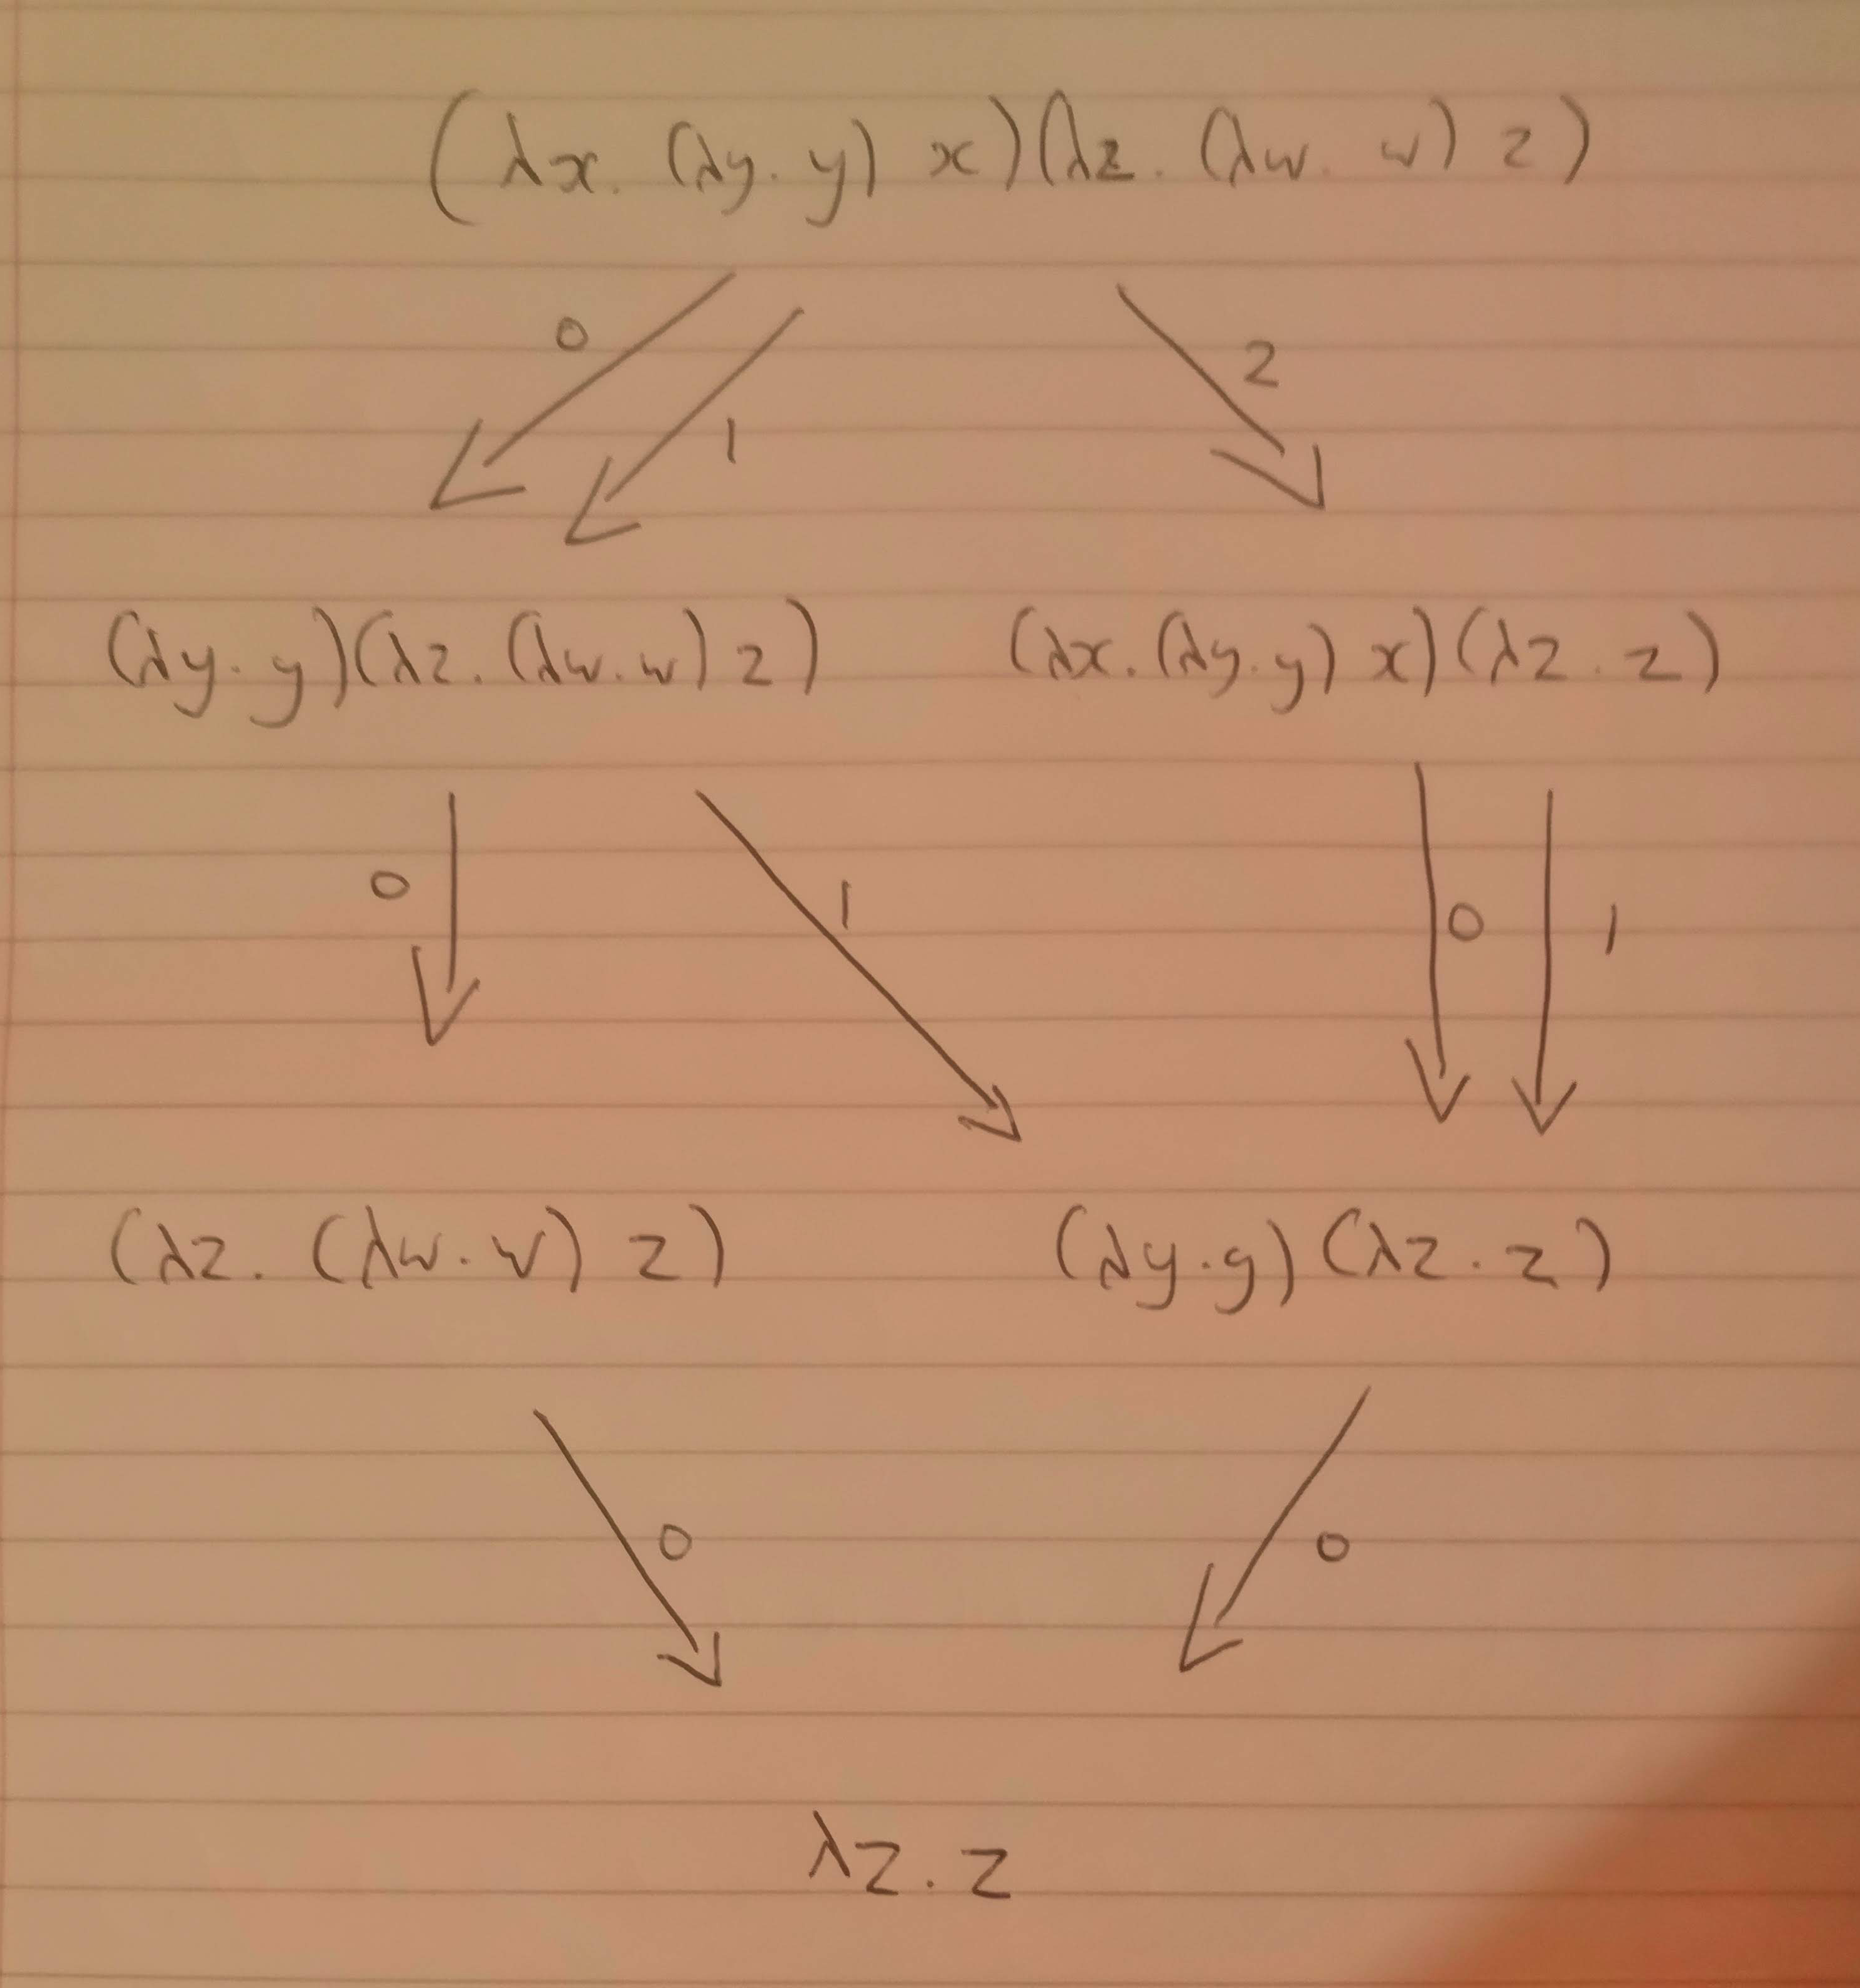 (λx. (λy. y) x)(λz. (λw. w) z)
0 1 2
(λy. y)(λz. (λw. w) z) (λx. (λy. y) x)(λz. z)
0 1 0 1
(λz. (λw. w) z) (λy. y)(λz. z)
0 0
λz. z